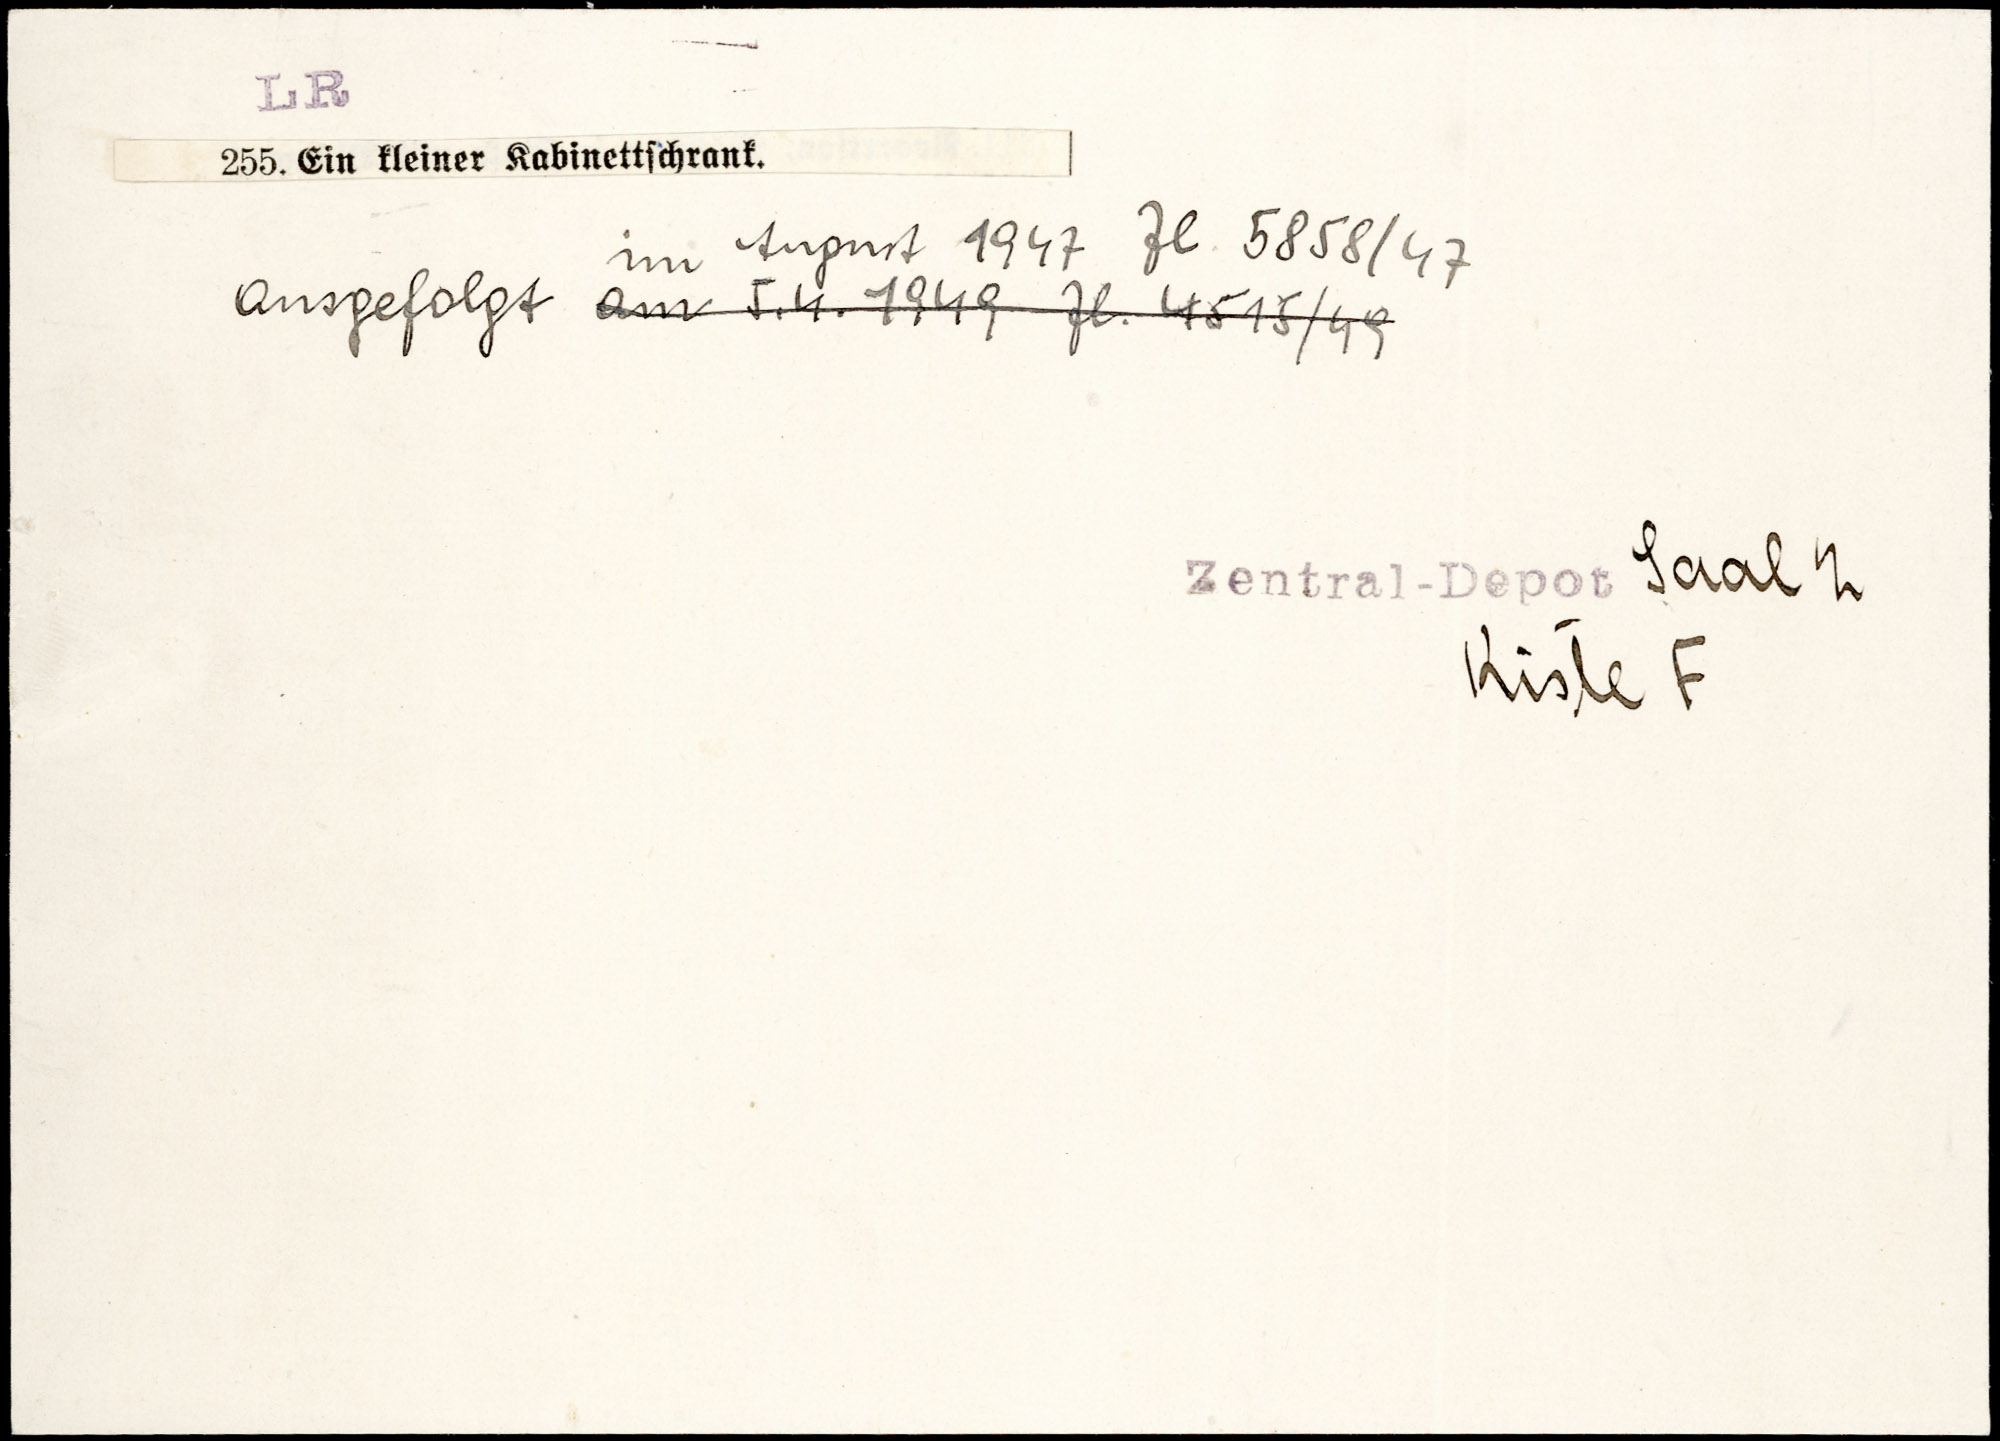 LR
255. Ein kleiner Kabinettschrank.
im August 1947 Zl. 5858/47
ausgefolgt am 5.4.1949 Zl. 4515/49
Zentral-Depot Saal
Kiste F